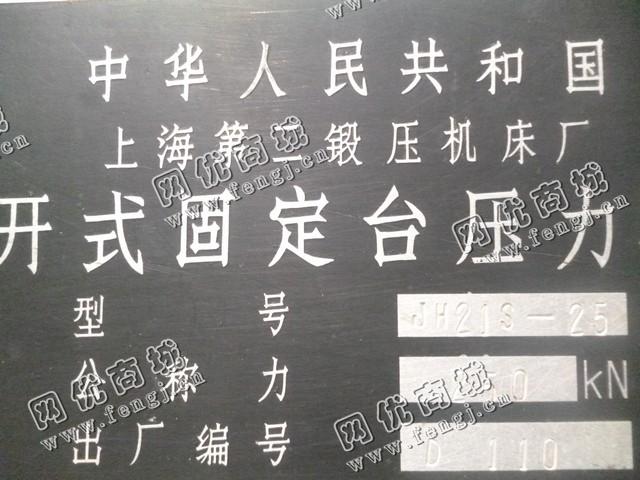 中华人民共和国
上海第二锻压机床厂
开式固定台压力
型号 JH21S-25
公称力 250 kN
出厂编号 D 110
网优商城
www.fengj.cn
网优商城
www.fengj.cn
网优商城
www.fengj.cn
网优商城
www.fengj.cn
网优商城
www.fengj.cn
网优商城
www.fengj.cn
网优商城
www.fengj.cn